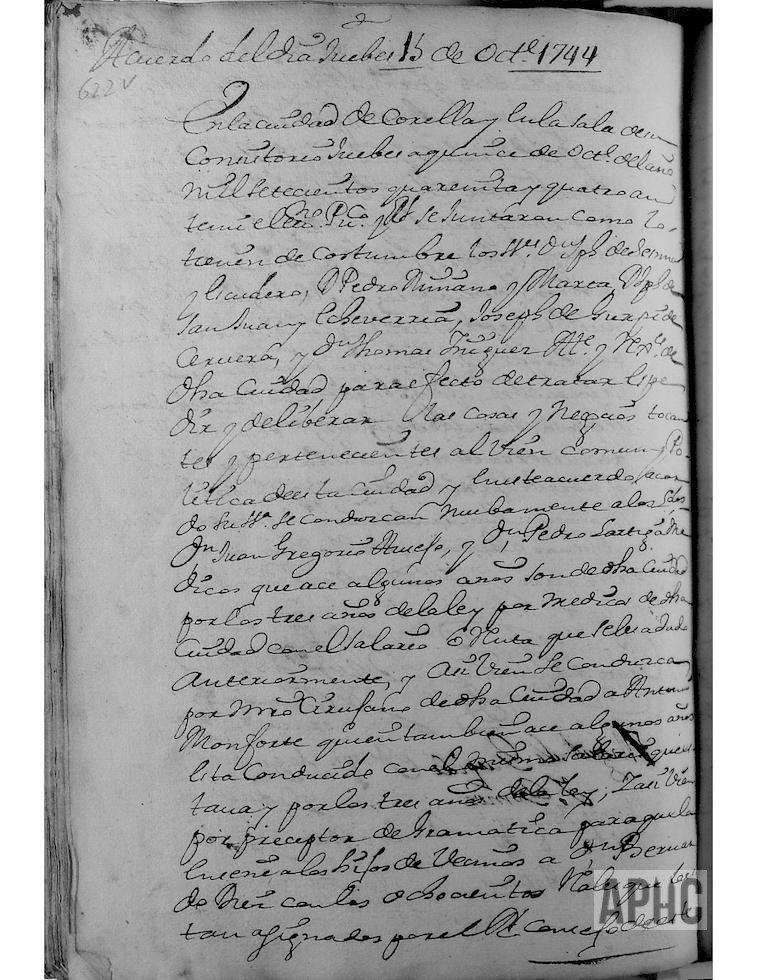 Acuerdo del dia Juebes 15 de Oct.e 1744
622v
En la ciudad de Corella y en la sala de su
Consistorio Juebes a quince de Oct.e del año
mil setecientos quarenta y quatro an
temi el ess.no P.co y se Juntaron como lo
tienen de costumbre los SS.res D.n Jph de Sesma
y Escudero, D Pedro Miñano y Marca, D Jph de
San Juan y Echeverria, Joseph de Gurpide
Cervera, y D.n Thomas Iñiguez Al.e y R.res de
dha Ciudad para efecto de tratar espe
dir y deliberar las cosas y Negocios tocan
tes y pertenecientes al Vien comun y Po-
litica de esta Ciudad y en este acuerdo
do su SS.a se conduzcan nuebamente a los
D.n Juan Gregorio Huesso, y D.n Pedro Lartiga Me
dicos que ace algunos años son de dha Ciudad
por los tres años de la ley por Medicos de dha
Ciudad con el salario o Renta que se les a dado
Anteriormente, y Asi Vien se Conduzca
por Mro Cirujano de dha Ciudad a Antonio
Monforte quien tambien ace algunos años
esta Conducido con el mismo salario que es
tava y por los tres años de la ley, Y asi Vien
por preceptor de Gramatica para que la
Enseñe a los hijos de Vecinos a D.n Bernar
do Diez con los ochocientos Rales que les
tan asignados por el R.l Consejo de este
APHC